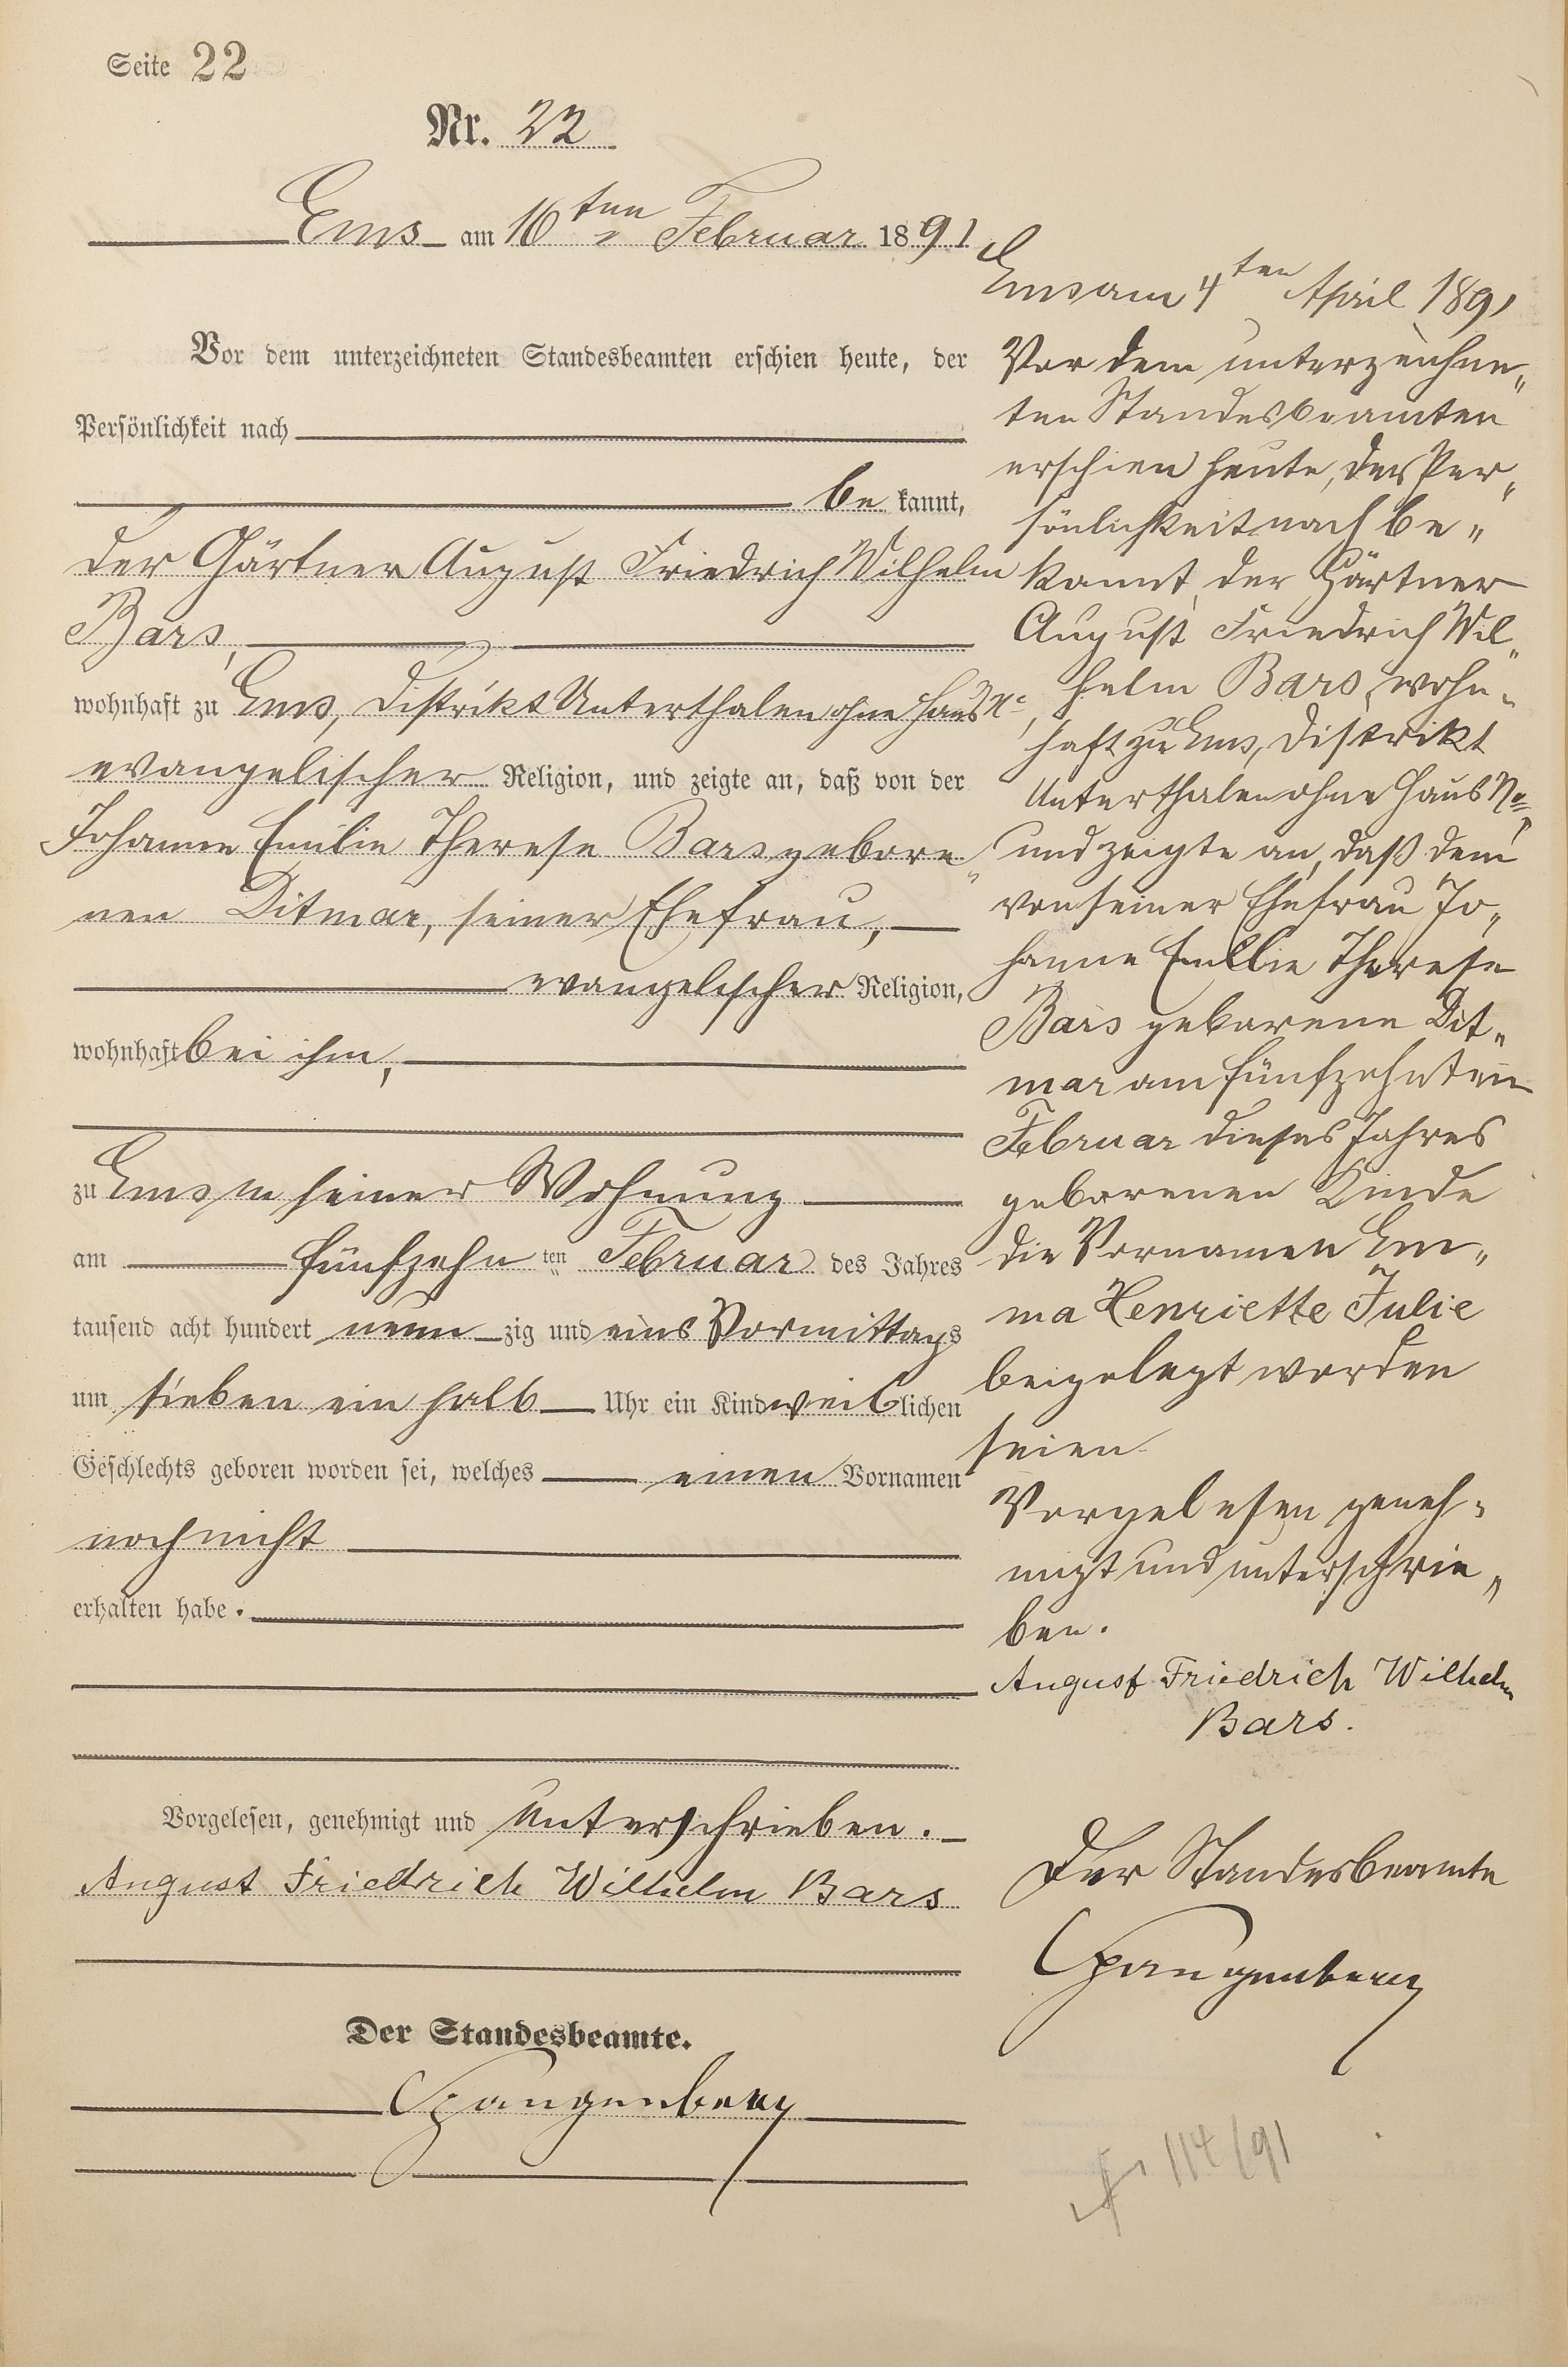 Seite 22
Nr. 22
Ems am 16ten Februar 1891
Vor dem unterzeichneten Standesbeamten erschien heute, der
Persönlichkeit nach
be kannt,
der Gärtner August Friedrich Wilhelm
Bars,
wohnhaft zu Ems, Distrikt Unterthalen ohne Haus No,
evangelischer Religion, und zeigte an, daß von der
Johanne Emilie Therese Bars gebore„
nen Ditmar, seiner Ehefrau,
evangelischer Religion,
wohnhaft bei ihm,
zu Ems in seiner Wohnung
am fünfzehn ten Februar des Jahres
tausend acht hundert neun zig und eins Vormittags
um sieben ein halb Uhr ein Kind weiblichen
Geschlechts geboren worden sei, welches einen Vornamen
noch nicht
erhalten habe.
Vorgelesen, genehmigt und unterschrieben.
August Friedrich Wilhelm Bars
Der Standesbeamte.
Spangenberg
Ems am 4ten April 1891
Vor dem unterzeichne„
ten Standesbeamten
erschien heute, der Per„
sönlichkeit nach be„
kannt, der Gärtner
August Friedrich Wil„
helm Bars, wohn„
haft zu Ems, Distrikt
Unterthalen ohne Haus No,
und zeigte an, daß dem
von seiner Ehefrau Jo„
hanne Emilie Therese
Bars geborene Dit„
mar am fünfzehnten
Februar dieses Jahres
geborenen Kinde
die Vornamen Em„
ma Henriette Julie
beigelegt worden
seien.
Vorgelesen geneh„
migt und unterschrie„
ben.
August Friedrich Wilhelm
Bars.
Der Standesbeamte
Spangenberg
114/91